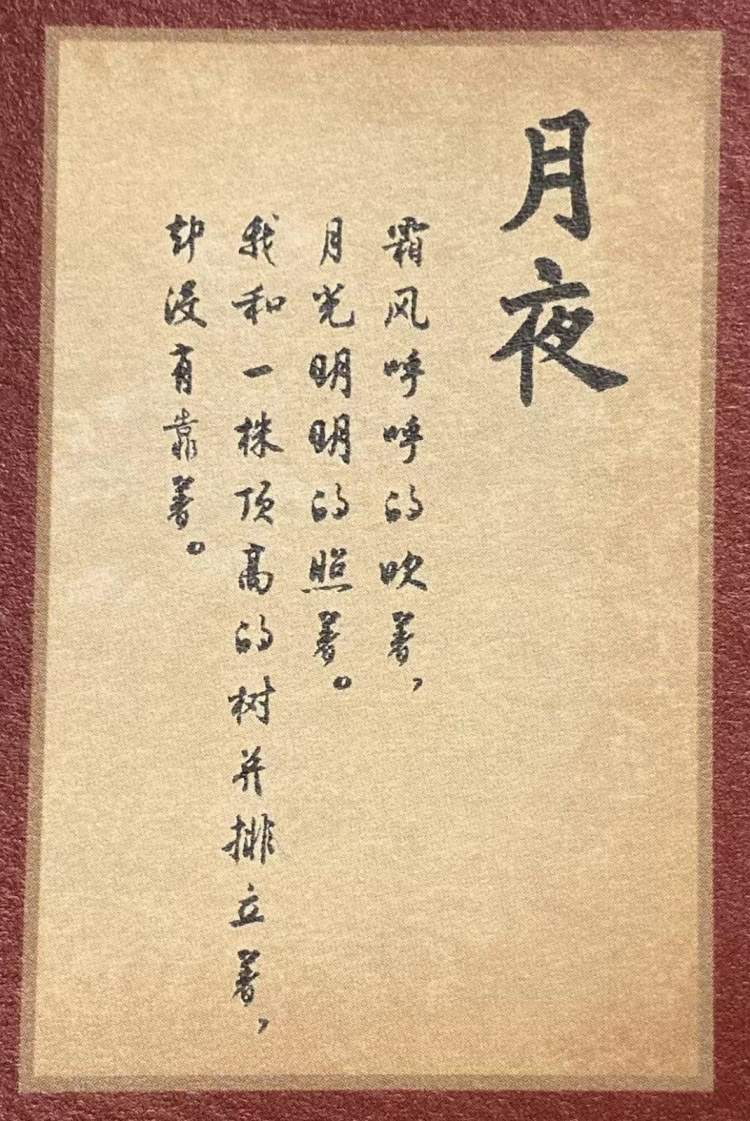 月夜
霜风呼呼的吹着，
月光明明的照着。
我和一株顶高的树并排立着，
却没有靠着。